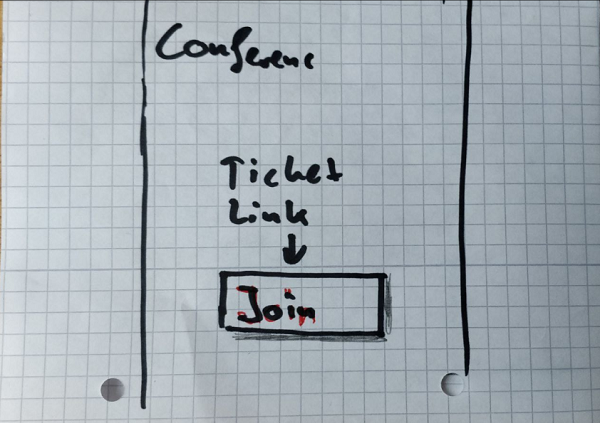 Conferenc
Ticket
Link
Join